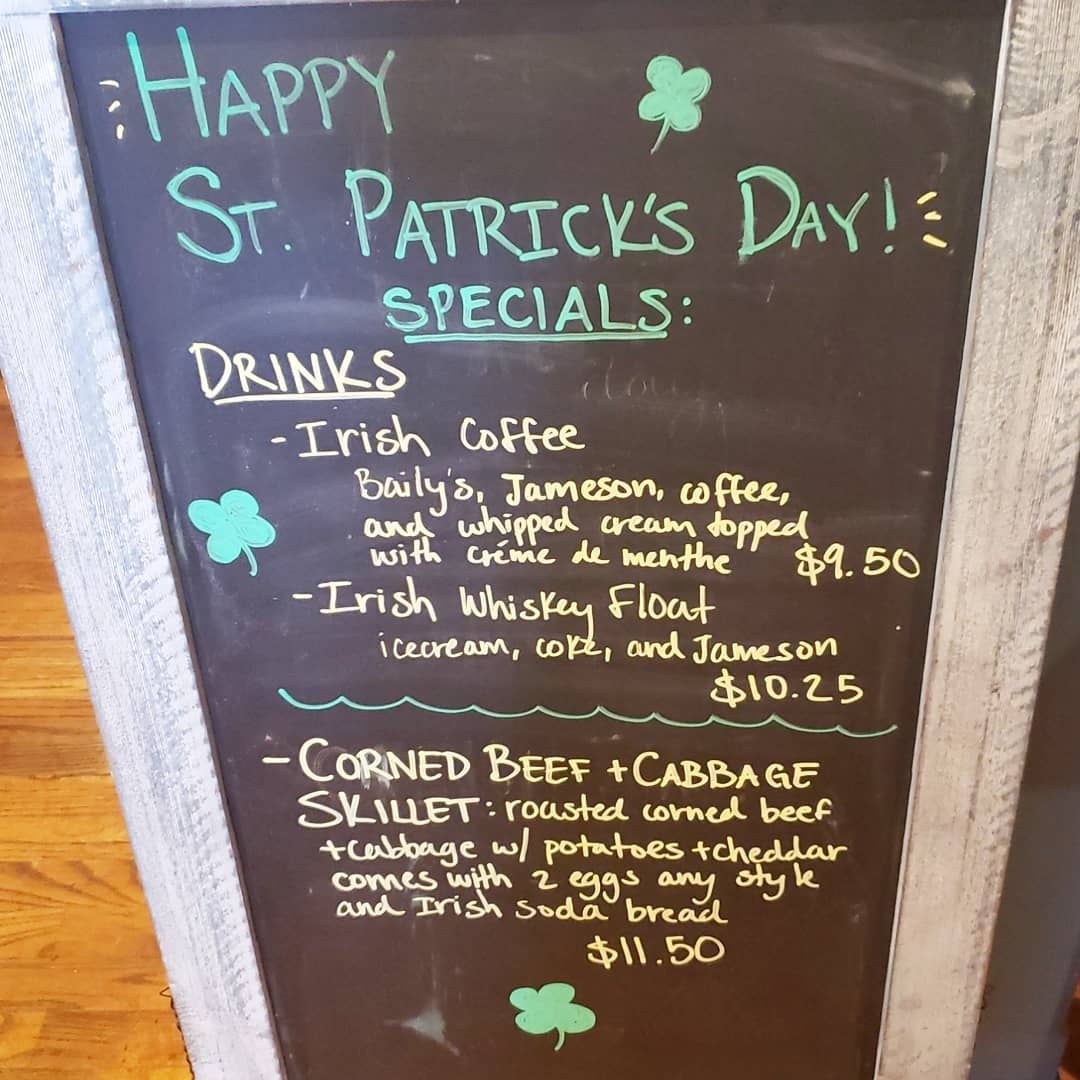 HAPPY
ST. PATRICK'S DAY!
SPECIALS:
DRINKS
- Irish Coffee
Baily's, Jameson, coffee,
and whipped cream topped
with créme de menthe $9.50
- Irish Whiskey Float
icecream, coke, and Jameson
$10.25
- CORNED BEEF + CABBAGE
SKILLET: roasted corned beef
+ cabbage w/ potatoes + cheddar
comes with 2 eggs any style
and Irish soda bread
$11.50